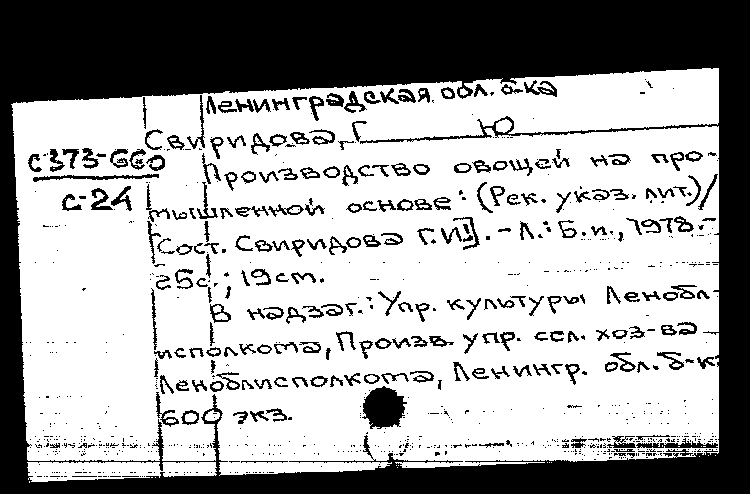 Ленинградская обл. б-ка
Свиридова, Г Ю
С373-660
Производство овощей на про-
С-24
мышленной основе: (Рек. указ. лит.)/
[Сост. Свиридова Г.И]. - Л.: Б.и., 1978.-
25с.; 19см.
В надзаг.: Упр. культуры Ленобл-
исполкома, Произв. упр. сел. хоз-ва
Леноблисполкома, Ленингр. обл. б-к
600 экз.